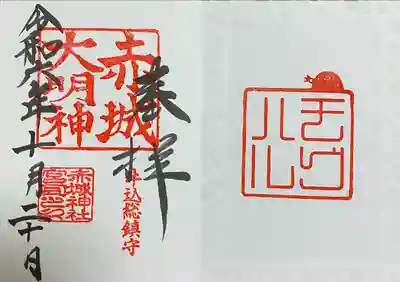 奉拝
赤城
大明神
牛込総鎮守
赤城神社
令和六年十月二十日
ハル